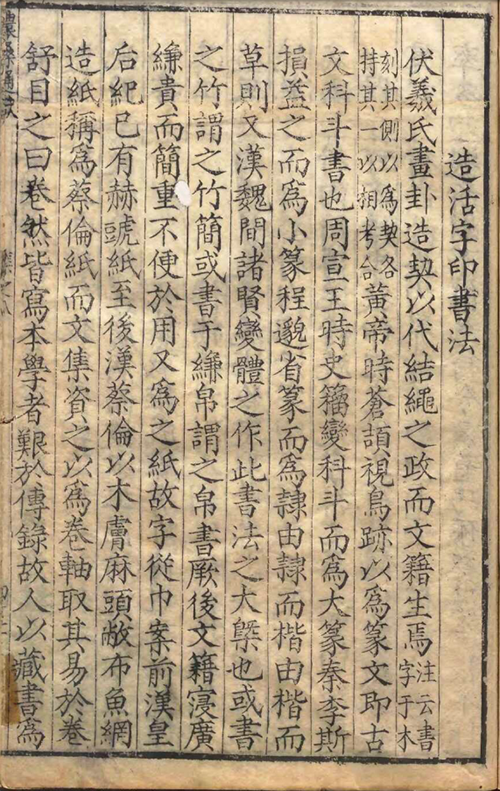 造活字印書法
伏羲氏畫卦造契以代結繩之政而文籍生焉注云書字于木
刻其側以為契各持其一以相考合黃帝時蒼頡視鳥跡以為篆文即古
文科斗書也周宣王時史籀變科斗而為大篆秦李斯
損益之而為小篆程邈省篆而為隸由隸而楷由楷而
草則又漢魏間諸賢變體之作此書法之大槩也或書
之竹謂之竹簡或書于縑帛謂之帛書厥後文籍寖廣
縑貴而簡重不便於用又為之紙故字從巾案前漢皇
后紀已有赫號紙至後漢蔡倫以木膚麻頭敝布魚網
造紙稱為蔡倫紙而文集資之以為卷軸取其易於卷
舒目之曰卷然皆寫本學者艱於傳錄故人以藏書為